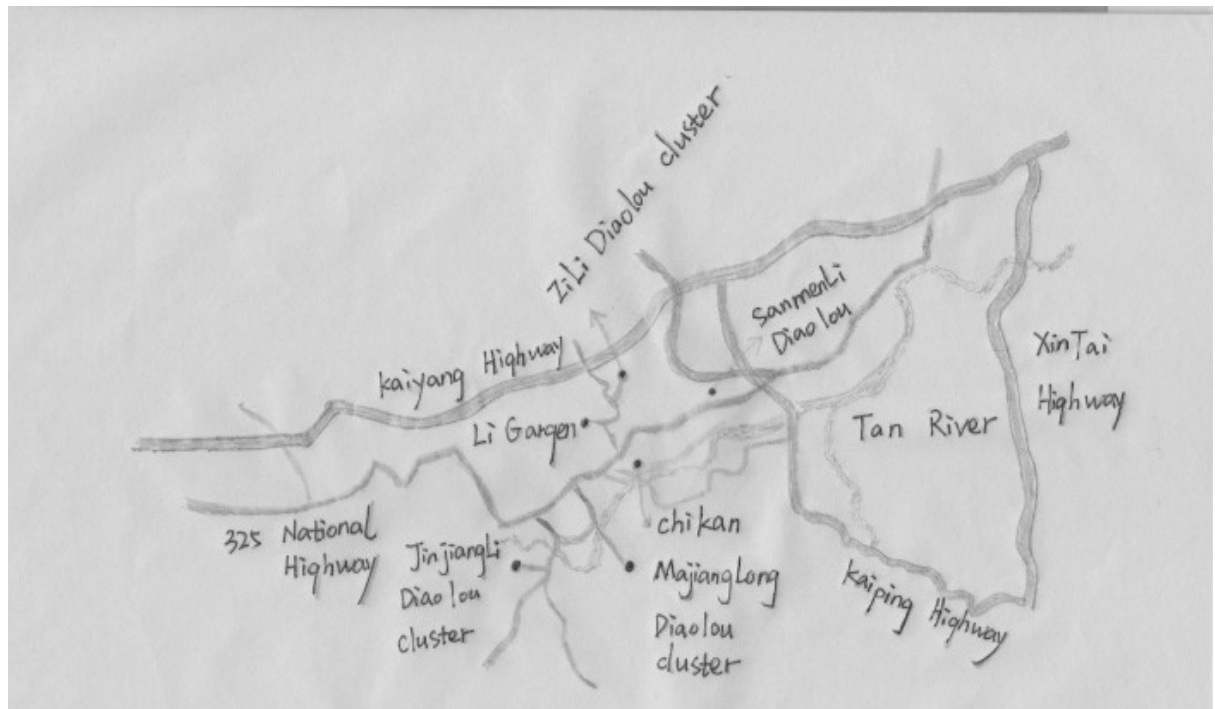 ZiLi Diaolou cluster
SanmenLi
Diaolou
Kaiyang Highway
XinTai
Highway
Li Gargen
Tan River
325 National
Highway
JinjiangLi
Diaolou
cluster
chikan
MajiangLong
Diaolou
cluster
Kaiping Highway